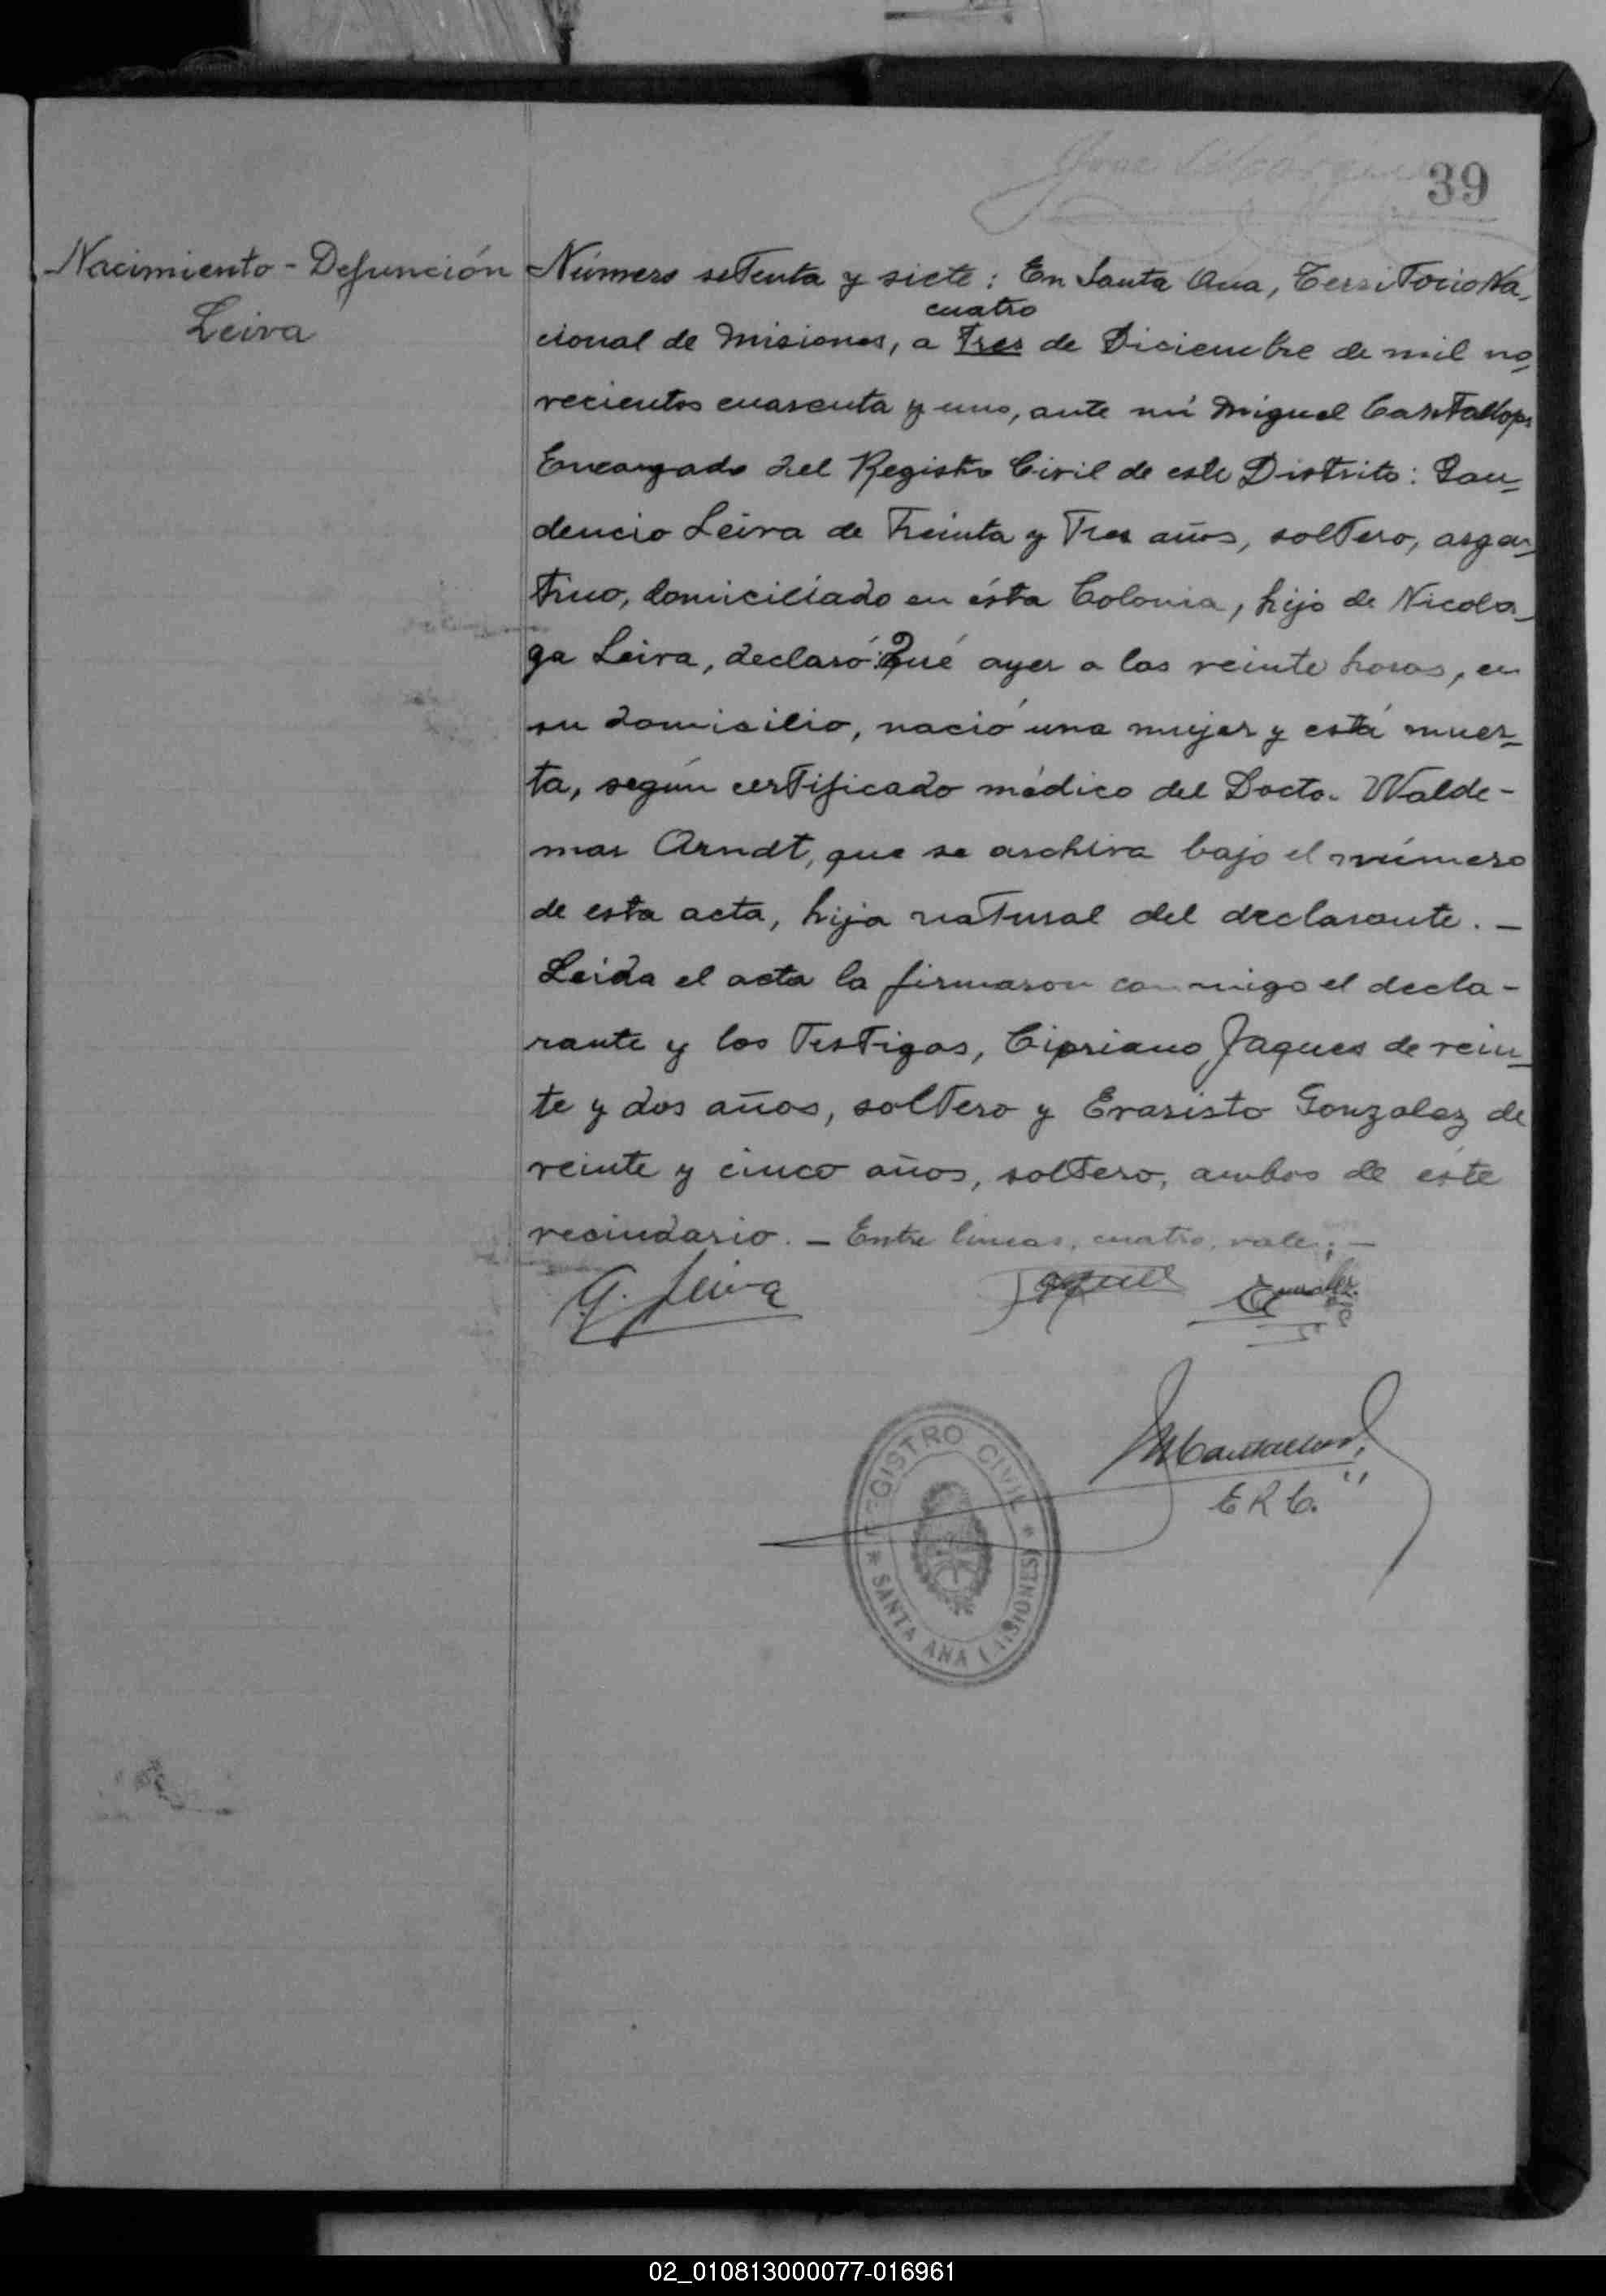 39
Nacimiento - Defunción
Leiva
Número setenta y siete: En Santa Ana, Territorio Na-
cuatro
cional de Misiones, a tres de Diciembre de mil no-
vecientos cuarenta y uno, ante mí Miguel Cantallops
Encargado del Registro Civil de este Distrito: Gau-
dencio Leiva de treinta y tres años, soltero, argen-
tino, domiciliado en ésta Colonia, hijo de Nicola-
ga Leiva, declaró: Qué ayer a las veinte horas, en
su domicilio, nació una mujer y está muer-
ta, según certificado médico del Doctor Walde-
mar Arndt, que se archiva bajo el número
de esta acta, hija natural del declarante. -
Leida el acta la firmaron conmigo el decla-
rante y los testigos, Cipriano Jaques de vein-
te y dos años, soltero y Evaristo Gonzalez de
veinte y cinco años, soltero, ambos de éste
vecindario. - Entre lineas, cuatro, vale; -
G. Leiva
E Gonzalez
MCantallops
E R C.
REGISTRO CIVIL * SANTA ANA (MISIONES) *
02_010813000077-016961